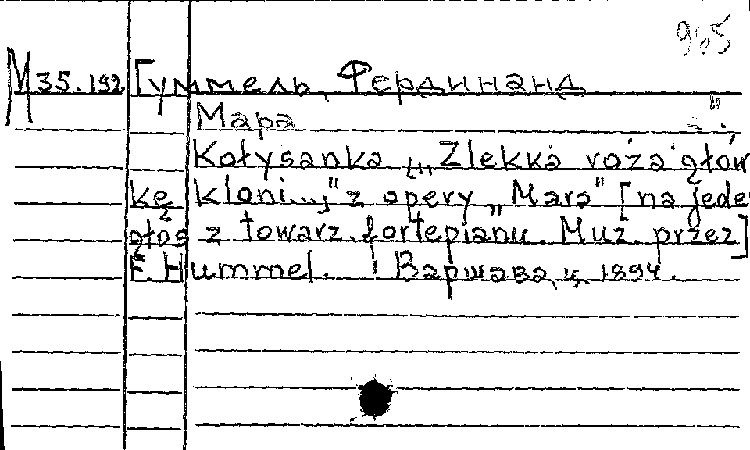 905
М 35.192 Гуммель, Фердинанд
Мара
Kołysanka („Zlekka róża głów
kę kłoni...)" z opery „Mara" [na jeden
głos z towarz. fortepianu. Muz. przez]
F. Hummel. Варшава, ц. 1894.